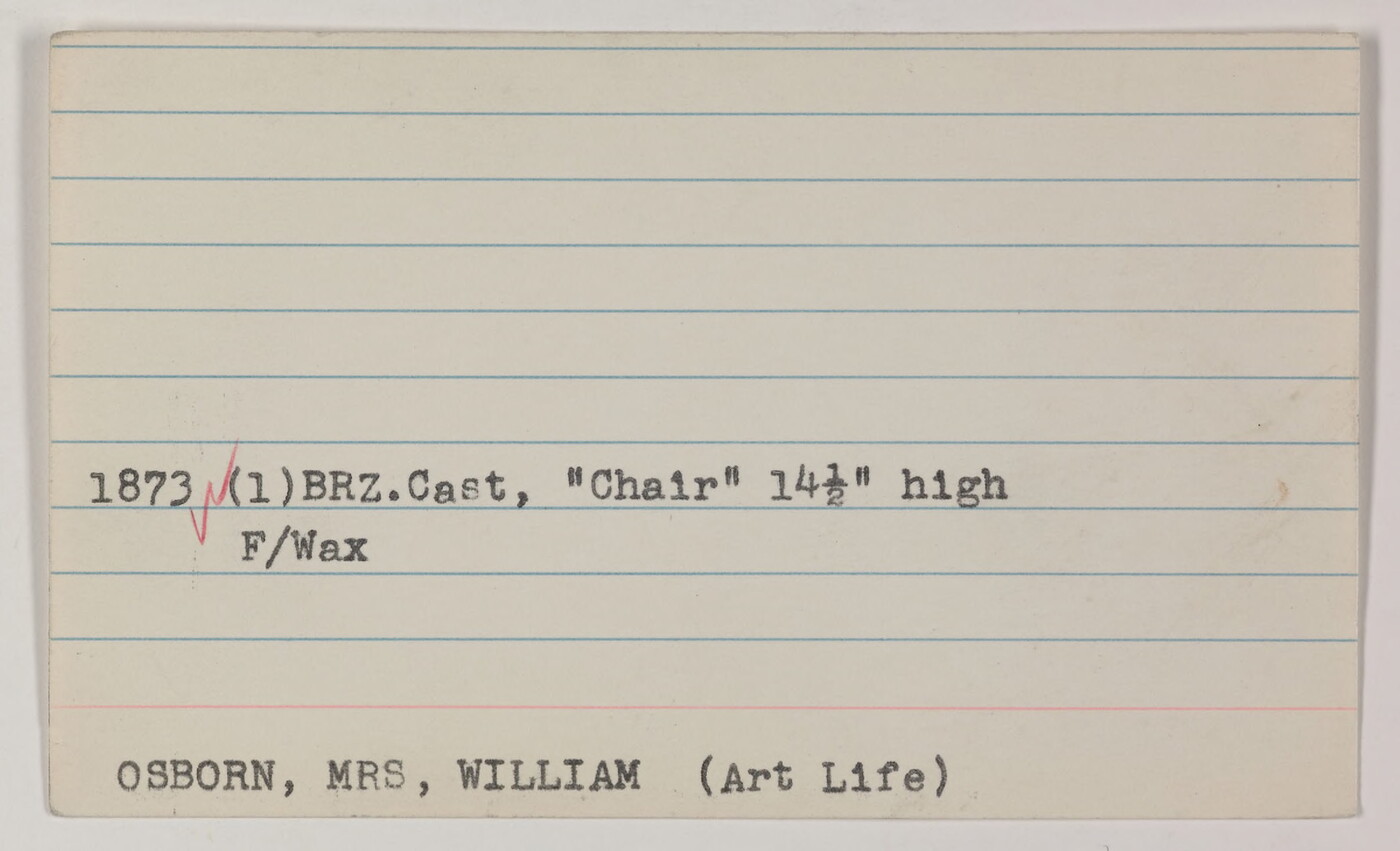 1873 (1)BRZ.Cast, "Chair" 14½" high
F/Wax
OSBORN, MRS, WILLIAM (Art Life)